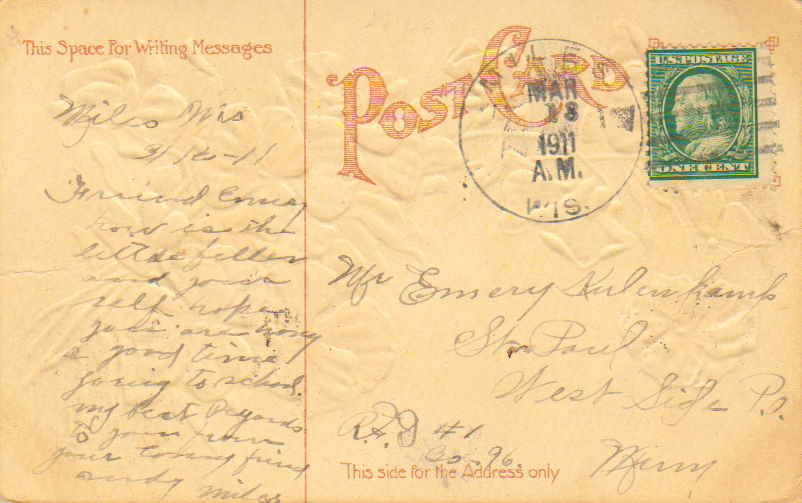 This Space For Writing Messages
POST CARD
MILES
MAR
13
1911
A.M.
WIS.
U.S. POSTAGE
ONE CENT
Miles Wis
3/12-11
Friend Emery
how is the
little feller
and your
self hope
you are having
a good time
going to school.
my best Regards
to you from
your loving frind
andy miles
Mr Emery Kulenkamp
St. Paul
West Side P.
R.F.D #1
Co. 96.
Minn
This side for the Address only